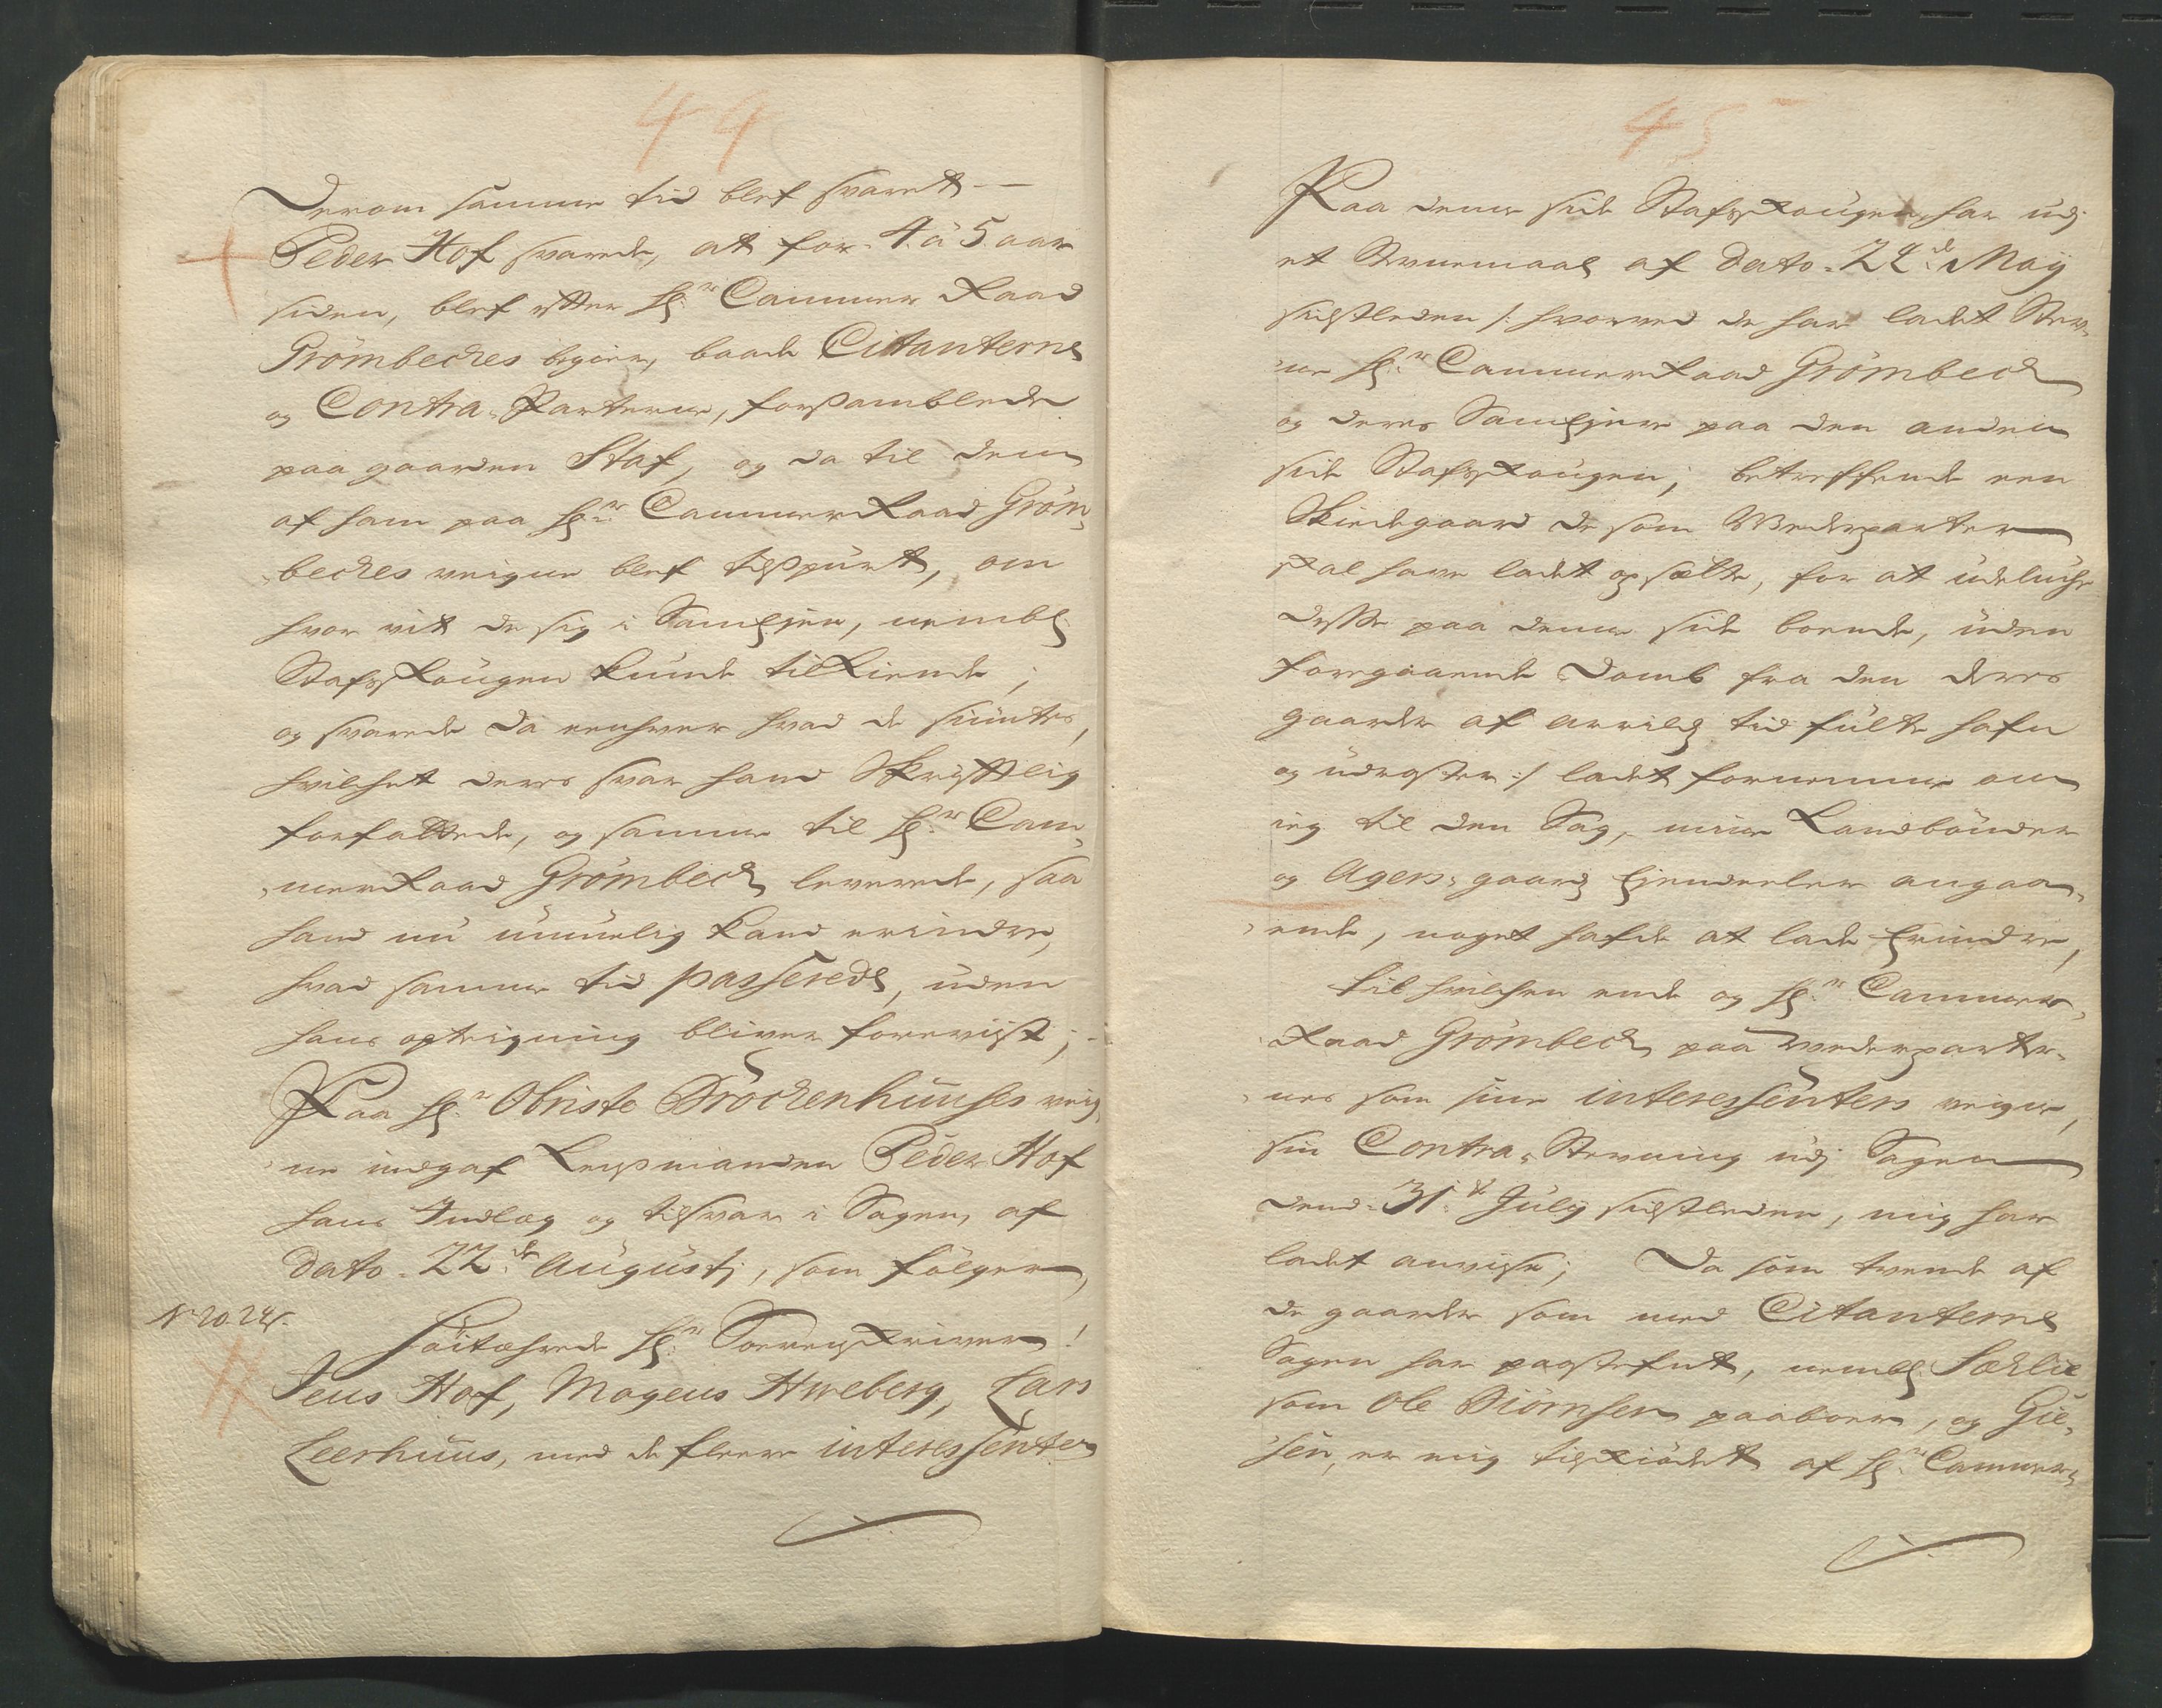 44
Derom samme tid blef svaret —
Peder Hof svarede, at for 4 à 5 aar
siden, blef efter Hr: Cammer Raad
Grömbeckes begier, baade Citanterne
og Contra-Parterne, forsamblede
paa gaarden Staf, og da til dem
af ham paa Hr: CammerRaad Gröm-
beckes veigne blef tilspurt, om
hvor vit de sig i Sameyen, nembl:
Stafsskougen kunde tilkiende;
og svarede da eenhver hvad de siuntes,
hvilchet deres svar hand Skrifftlig
forfattede, og samme til Hr: Cam-
merRaad Grömbeck leverede, saa
hand nu umuelig kand erindre,
hvad samme tid passerede, uden
hans opteigning bliver foreviist;
Paa Hr: Obriste Brockenhuuses veig-
ne indgaf Lensmanden Peder Hof
hans Indlæg og tilsvar i Sagen, af
dato 22de Augustj, som fölger,
No 20 24s.
Höitærede Hr: Sorenskriver!
Jens Hof, Mogens Hweberg, Lars
Leerhuus, med de fleere interessenter
45
Paa denne side Stafsskougen har udj
et Stevnemaal af dato 22de Maij
sidstleden /: hvorved de har ladet Stev-
ne Hr: CammerRaad Grömbeck
og deres Sameyere paa den anden
side Stafsskougen, betreffende een
Skiedegaard de som Wederparter
skal have ladet opsætte, for at udeluche
disse paa denne side boende, uden
foregaaende Domb fra den deres
gaarder af arrilds tid fulte hafn
og udraster :/ ladet fornemme om
ieg til den Sag, mine Landbönder
og Agers-gaards Eyendeeler angaa-
ende, noget hafde at lade Erindre,
til hvilchen ende og Hr: Cammer-
Raad Grömbeck paa Wederparter-
nes som sine interessenters veigne,
sin Contra-Stevning udj Sagen
dend 31te Julij sidstleden, mig har
ladet anvise; Da som tvende af
de gaarder som med Citanterne
Sagen har paastefnt, nembl: Sæhlie
som Ole Biörnsen paaboer, og Gie-
sen, er mig tilskiödet af Hr: Cammer-